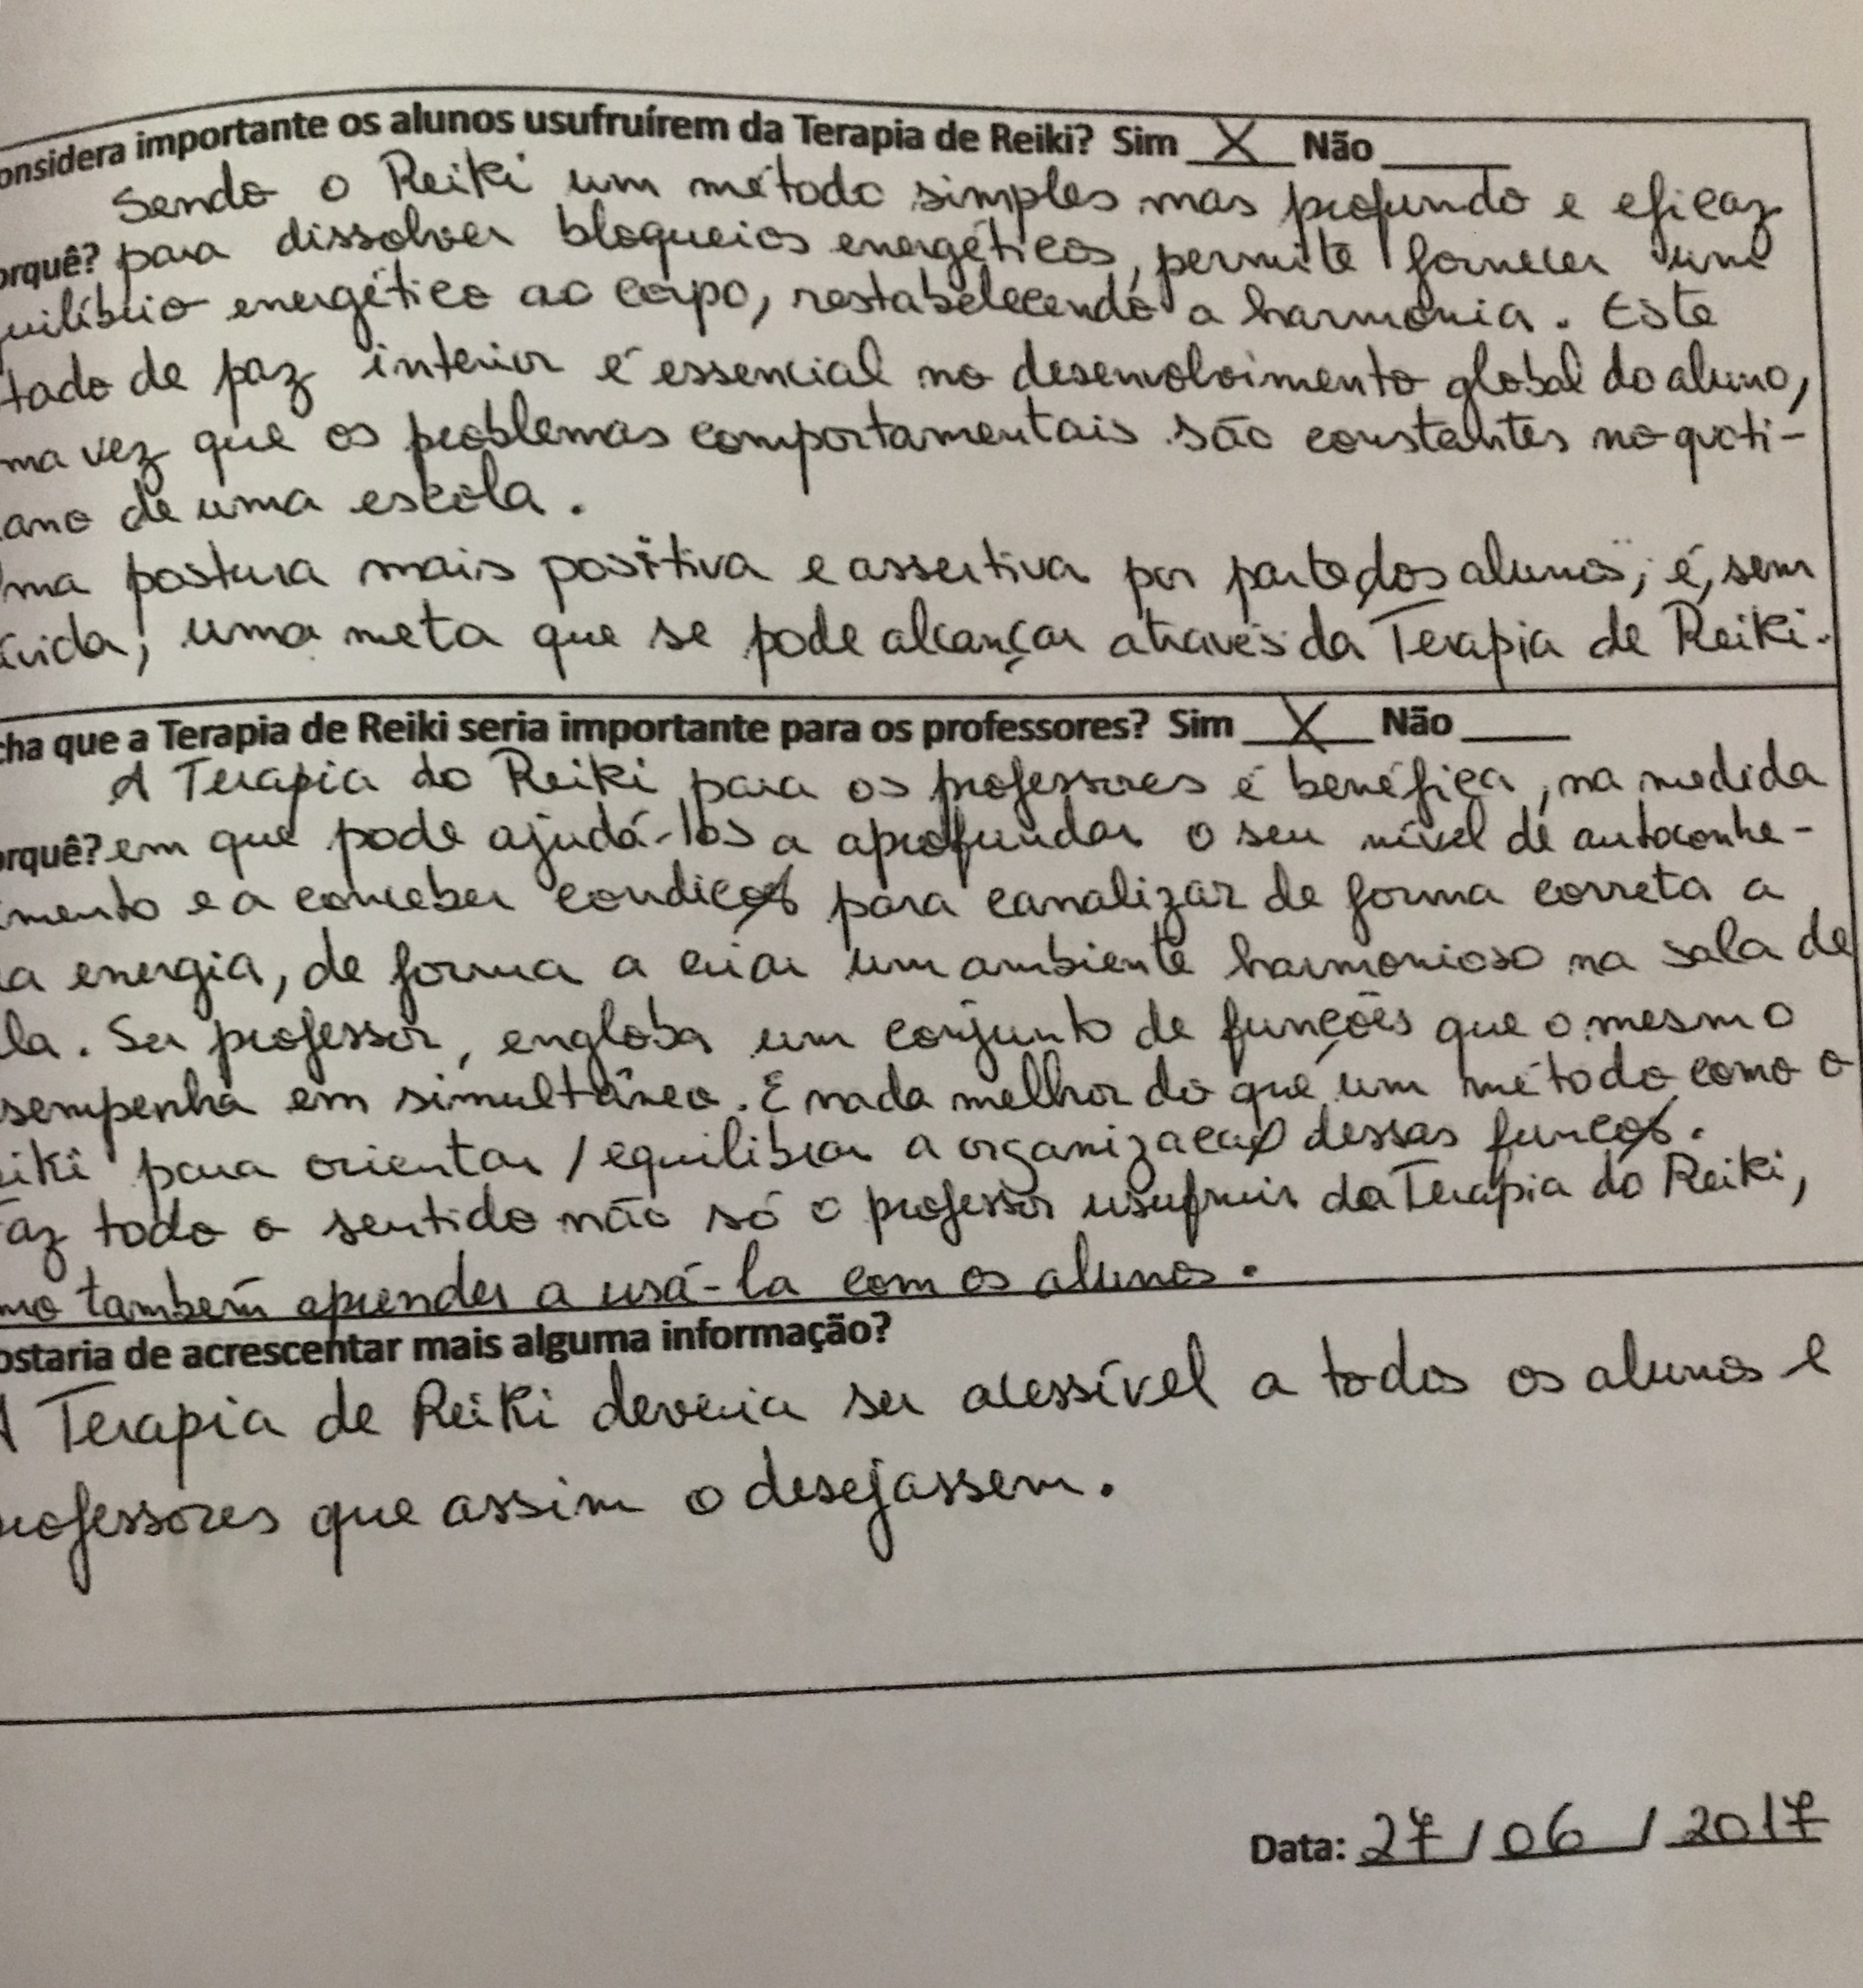 onsidera importante os alunos usufruírem da Terapia de Reiki? Sim X Não
Sendo o Reiki um método simples mas profundo e eficaz
orquê? para dissolver bloqueios energéticos, permite fornecer um
uilíbrio energético ao corpo, restabelecendo a harmonia. Este
tado de paz interior é essencial no desenvolvimento global do aluno,
ma vez que os problemas comportamentais são constantes no quoti-
ano de uma escola.
ma postura mais positiva e assertiva por parte dos alunos, é, sem
úvida, uma meta que se pode alcançar através da Terapia de Reiki.
cha que a Terapia de Reiki seria importante para os professores? Sim X Não
A Terapia do Reiki para os professores é benéfica, na medida
orquê? em que pode ajudá-los a aprofundar o seu nível de autoconhe-
imento e a conceber condições para canalizar de forma correta a
a energia, de forma a criar um ambiente harmonioso na sala de
la. Ser professor, engloba um conjunto de funções que o mesmo
sempenha em simultâneo. E nada melhor do que um método como o
eiki para orientar / equilibrar a organização dessas funções.
Faz todo o sentido não só o professor usufruir da Terapia do Reiki,
mo também aprender a usá-la com os alunos.
ostaria de acrescentar mais alguma informação?
A Terapia de Reiki deveria ser acessível a todos os alunos e
rofessores que assim o desejassem.
Data: 27 / 06 / 2017